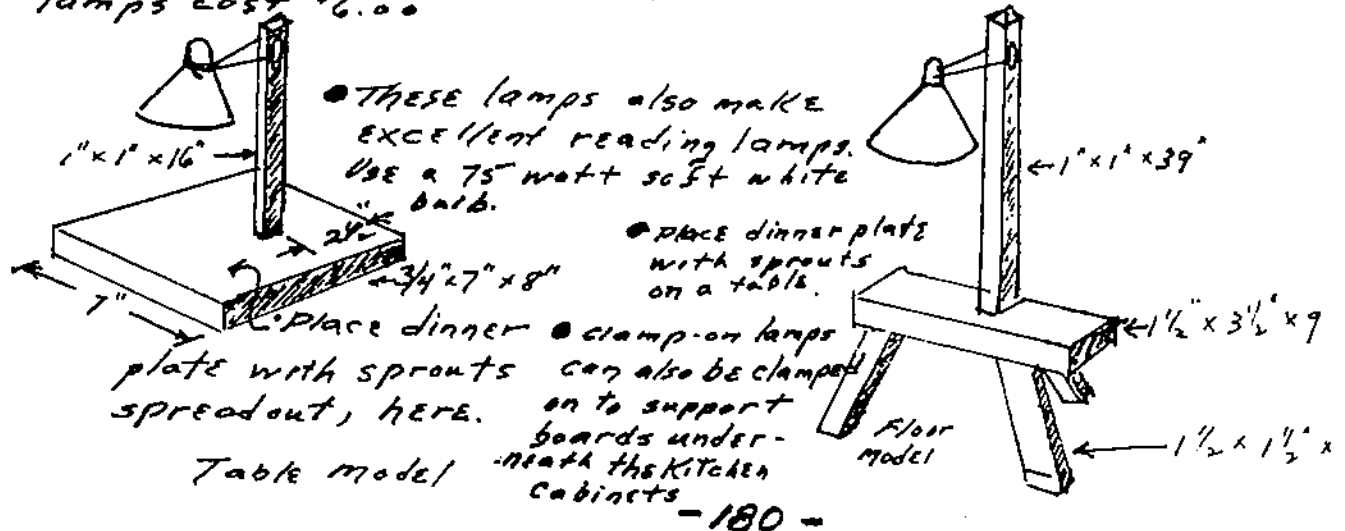 lamps cost $6.00
• These lamps also make
excellent reading lamps.
Use a 75 watt soft white
bulb.
1" x 1" x 16"
2½"
3/4" x 7" x 8"
7"
• Place dinner
plate with sprouts
spreadout, here.
Table Model
• Place dinner plate
with sprouts
on a table.
• Clamp-on lamps
can also be clamped
on to support
boards under-
neath the Kitchen
Cabinets
1" x 1" x 39"
1½" x 3½" x 9
Floor
Model
1½ x 1½" x
- 180 -